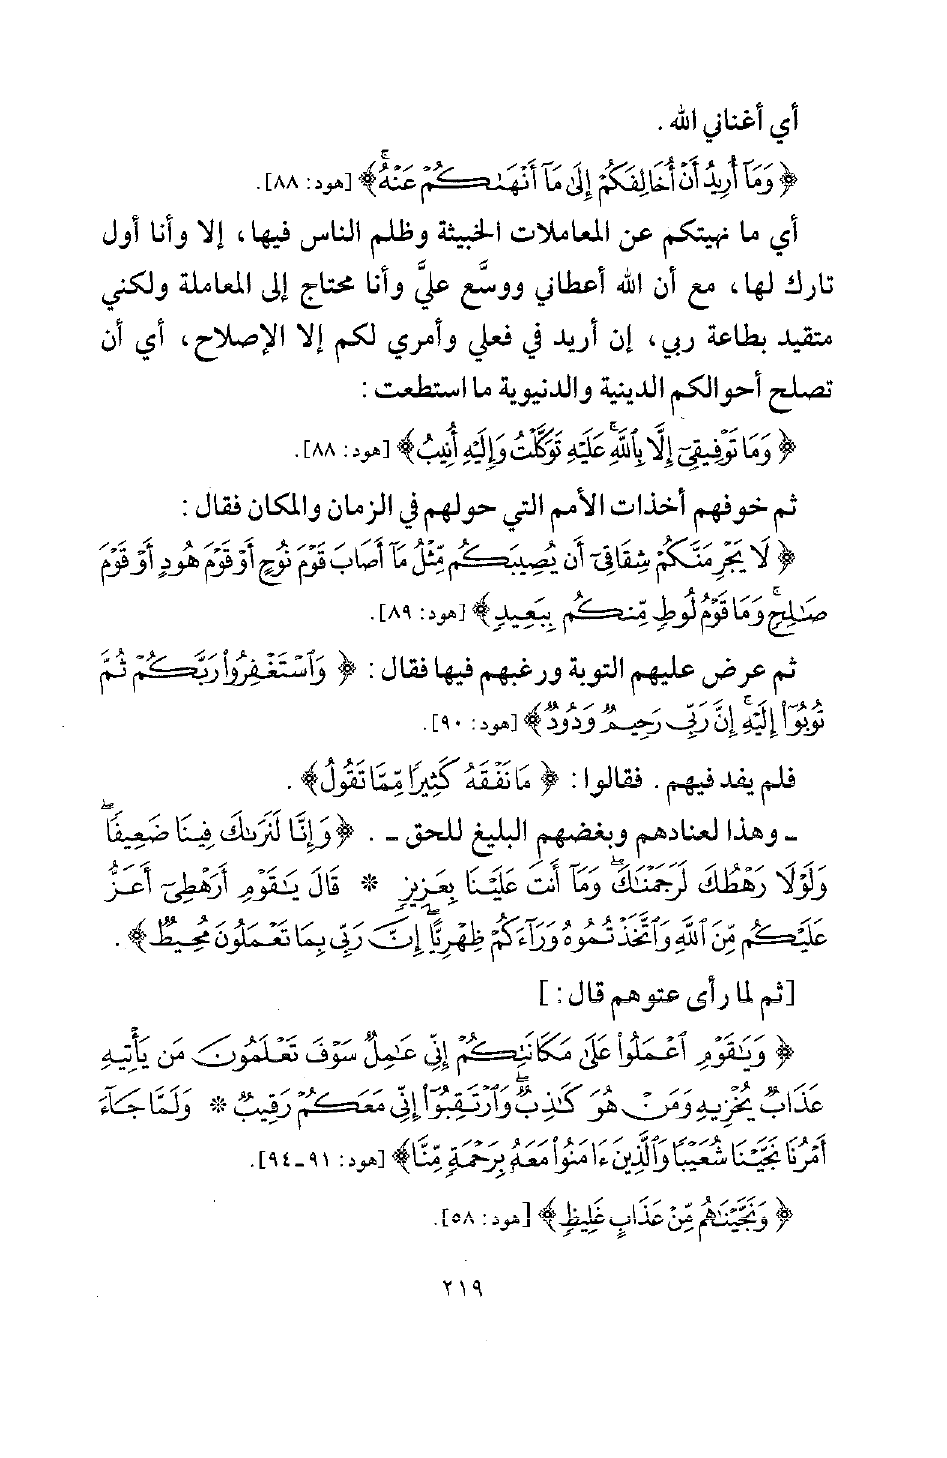 أي أغناني الله .
﴿ وَمَآ أُرِيدُ أَنْ أُخَالِفَكُمْ إِلَىٰ مَآ أَنْهَىٰكُمْ عَنْهُ ۚ ﴾ [هود: ٨٨].
أي ما نهيتكم عن المعاملات الخبيثة وظلم الناس فيها، إلا وأنا أول
تارك لها، مع أن الله أعطاني ووسَّع عليَّ وأنا محتاج إلى المعاملة ولكني
متقيد بطاعة ربي، إن أريد في فعلي وأمري لكم إلا الإصلاح، أي أن
تصلح أحوالكم الدينية والدنيوية ما استطعت :
﴿ وَمَا تَوْفِيقِىٓ إِلَّا بِٱللَّهِ ۚ عَلَيْهِ تَوَكَّلْتُ وَإِلَيْهِ أُنِيبُ ﴾ [هود: ٨٨].
ثم خوفهم أخذات الأمم التي حولهم في الزمان والمكان فقال :
﴿ لَا يَجْرِمَنَّكُمْ شِقَاقِىٓ أَن يُصِيبَكُم مِّثْلُ مَآ أَصَابَ قَوْمَ نُوحٍ أَوْ قَوْمَ هُودٍ أَوْ قَوْمَ
صَٰلِحٍ ۚ وَمَا قَوْمُ لُوطٍ مِّنكُم بِبَعِيدٍ ﴾ [هود: ٨٩].
ثم عرض عليهم التوبة ورغبهم فيها فقال : ﴿ وَٱسْتَغْفِرُوا۟ رَبَّكُمْ ثُمَّ
تُوبُوٓا۟ إِلَيْهِ ۚ إِنَّ رَبِّى رَحِيمٌ وَدُودٌ ﴾ [هود: ٩٠].
فلم يفد فيهم . فقالوا : ﴿ مَا نَفْقَهُ كَثِيرًا مِّمَّا تَقُولُ ﴾ .
ـ وهذا لعنادهم وبغضهم البليغ للحق ـ . ﴿ وَإِنَّا لَنَرَىٰكَ فِينَا ضَعِيفًا ۖ
وَلَوْلَا رَهْطُكَ لَرَجَمْنَٰكَ ۖ وَمَآ أَنتَ عَلَيْنَا بِعَزِيزٍ * قَالَ يَٰقَوْمِ أَرَهْطِىٓ أَعَزُّ
عَلَيْكُم مِّنَ ٱللَّهِ وَٱتَّخَذْتُمُوهُ وَرَآءَكُمْ ظِهْرِيًّا ۖ إِنَّ رَبِّى بِمَا تَعْمَلُونَ مُحِيطٌ ﴾ .
[ثم لما رأى عتوهم قال :]
﴿ وَيَٰقَوْمِ ٱعْمَلُوا۟ عَلَىٰ مَكَانَتِكُمْ إِنِّى عَٰمِلٌ سَوْفَ تَعْلَمُونَ مَن يَأْتِيهِ
عَذَابٌ يُخْزِيهِ وَمَنْ هُوَ كَٰذِبٌ ۖ وَٱرْتَقِبُوٓا۟ إِنِّى مَعَكُمْ رَقِيبٌ * وَلَمَّا جَآءَ
أَمْرُنَا نَجَّيْنَا شُعَيْبًا وَٱلَّذِينَ ءَامَنُوا۟ مَعَهُۥ بِرَحْمَةٍ مِّنَّا ﴾ [هود: ٩١ـ٩٤].
﴿ وَنَجَّيْنَٰهُم مِّنْ عَذَابٍ غَلِيظٍ ﴾ [هود: ٥٨].
٢١٩